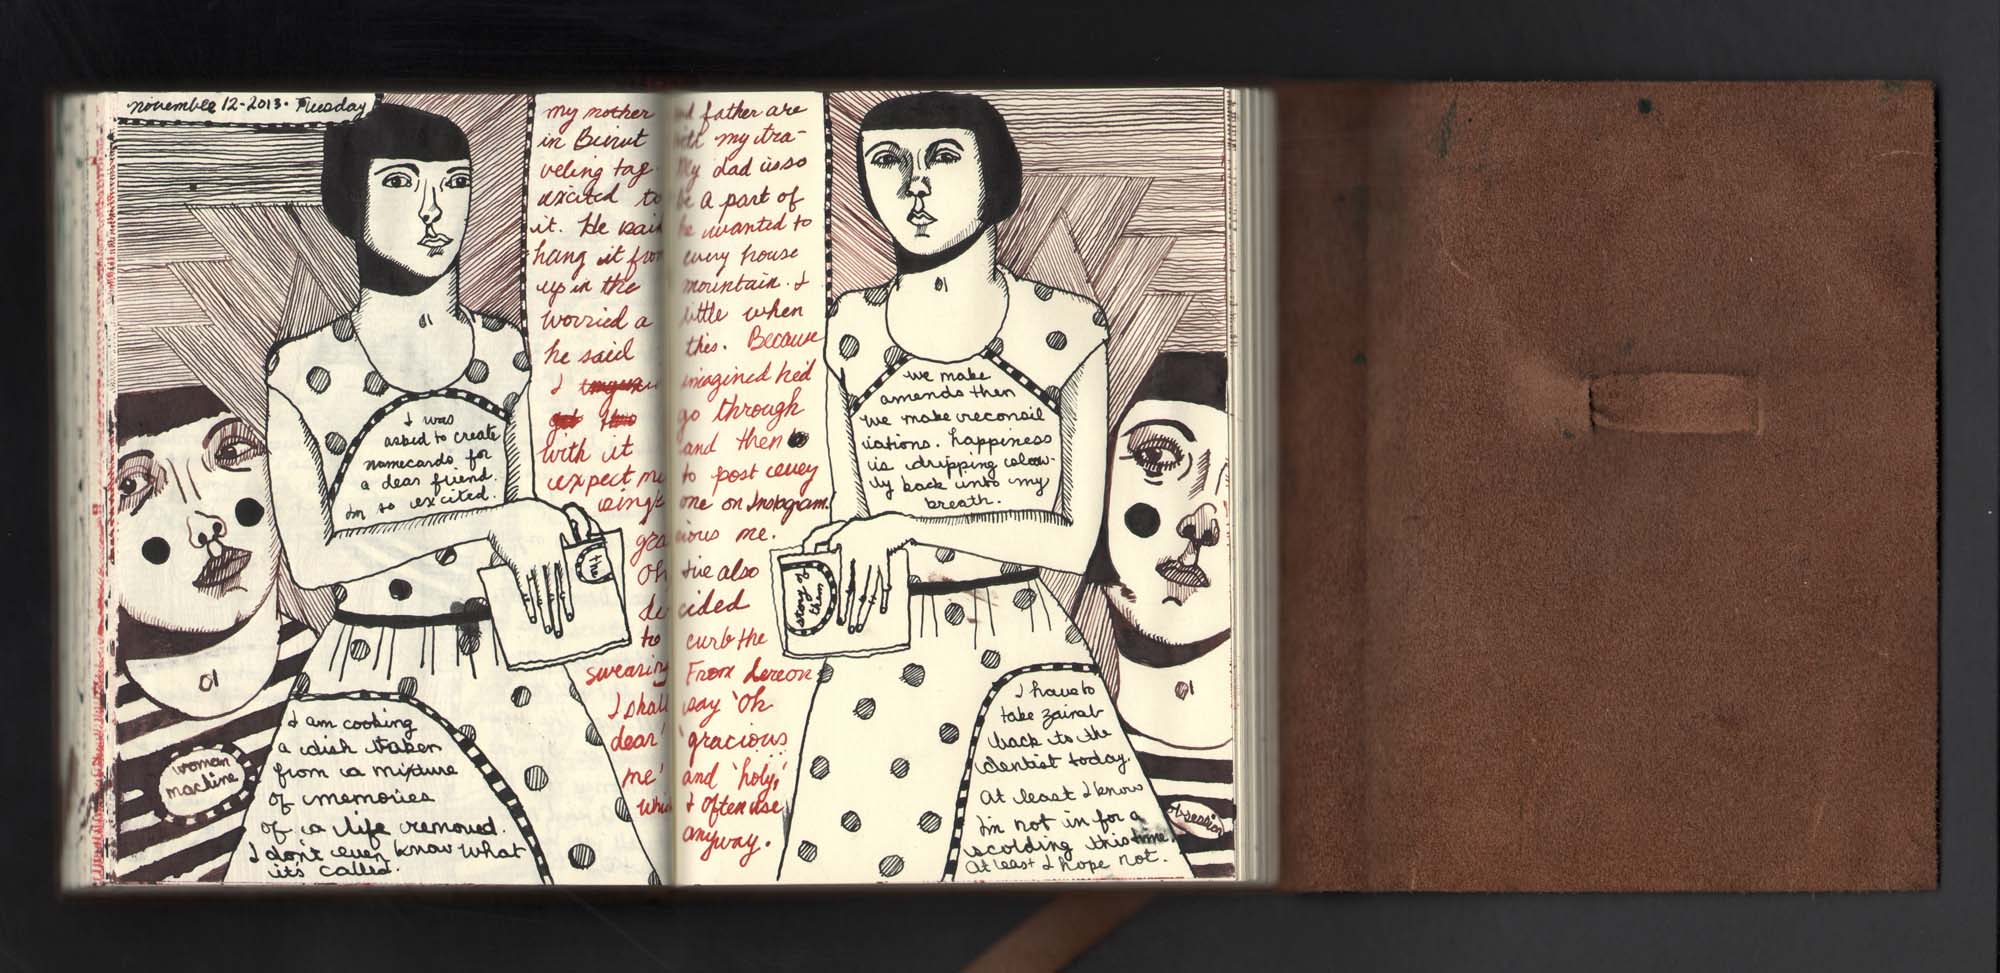 november 12-2013. Tuesday
my mother and father are
in Beirut with my tra-
veling tag My dad is so
excited to be a part of
it. He said he wanted to
hang it from every house
up in the mountain. I
worried a little when
he said this. Because
I imagined he'd
go through
with it and then
expect me to post every
one on Instagram.
gracious me.
Oh I've also
decided
to curb the
swearing From hereon
I shall say 'Oh
dear' 'gracious
me' and 'holy,'
which I often use
anyway.
I was
asked to create
namecards for
a dear friend.
I'm so excited.
the
woman
machine
I am cooking
a dish taken
from a mixture
of memories
of a life removed.
I don't even know what
it's called.
we make
amends then
we make reconcil
iations. happiness
is dripping slow-
ly back into my
breath.
story of
them
I have to
take zainab
back to the
dentist today.
At least I know
I'm not in for a
scolding this time.
At least I hope not.
obsession